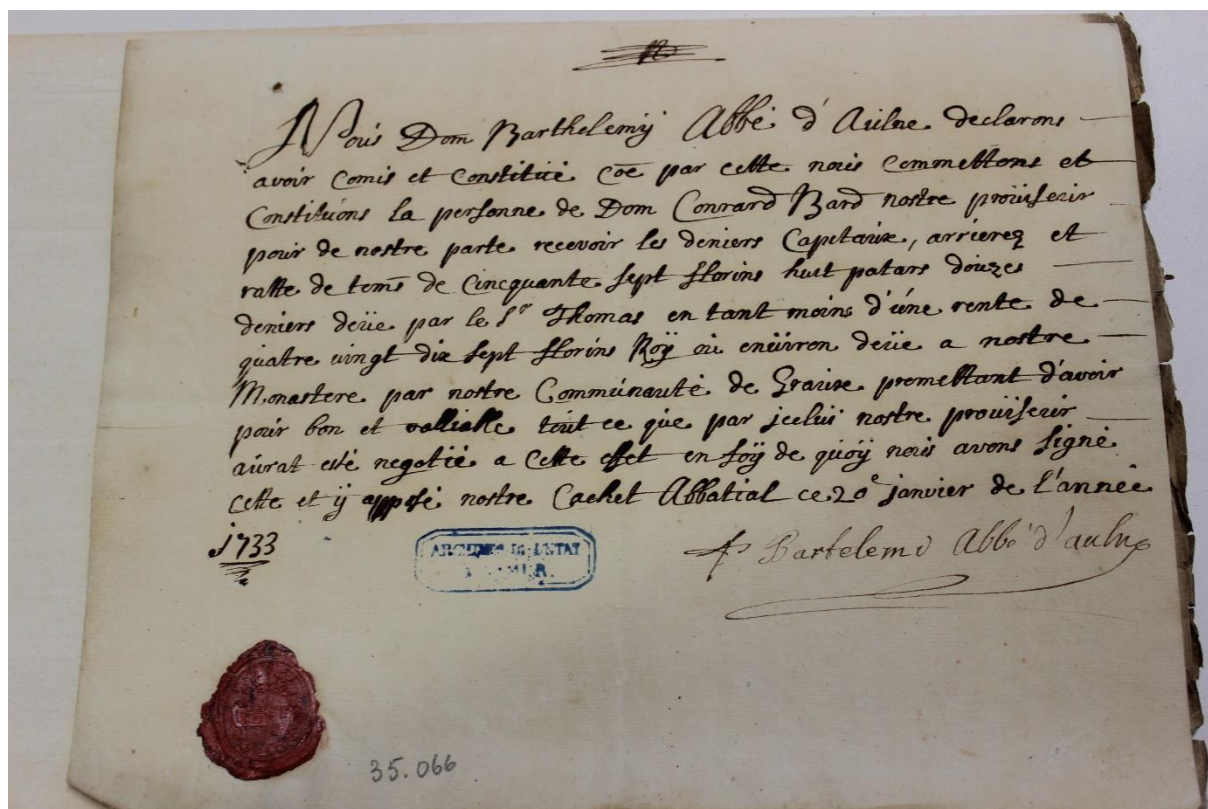 Nous Dom Barthelemij Abbé d'Aulne declarons
avoir comis et constitué cõe par cette nous commettons et
constituons la personne de Dom Conrard Bard nostre prouiseur
pour de nostre parte recevoir les deniers Capitaux, arrierez et
ratte de tems de Cincquante sept florins huit patars douzes
deniers deüe par le Sr Thomas en tant moins d'une rente de
quatre vingt dix sept florins Roÿ ou enuiron deüe a nostre
Monastere par nostre Communauté de Graux promettant d'avoir
pour bon et valliable tout ce que par jcelui nostre prouiseur
aurat esté negotié a Cette effet en foÿ de quoÿ nous avons signé
cette et ÿ apposé nostre Cachet Abbatial ce 20e janvier de l'année
1733
Bartelemi Abbé d'aulne
ARCHIVES DE L'ETAT
A NAMUR.
35.066